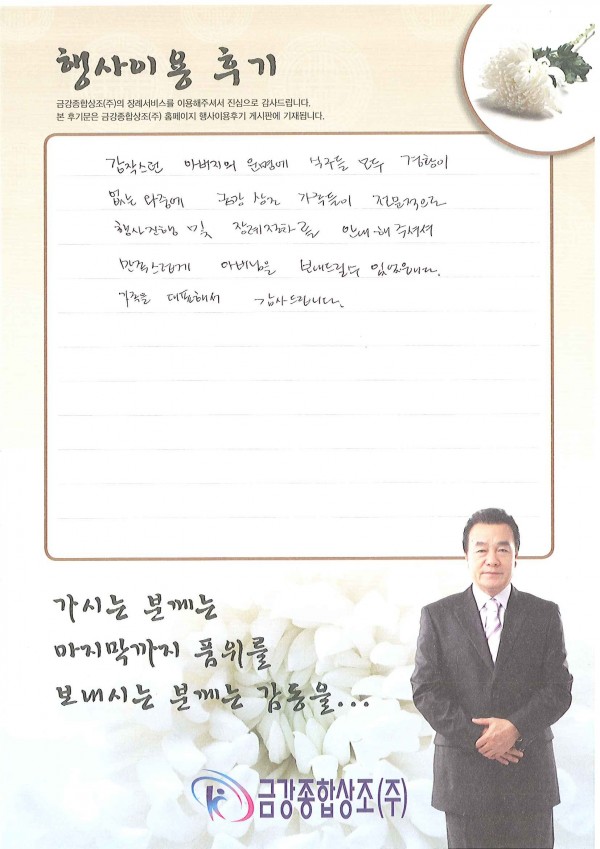 행사이용 후기
금강종합상조(주)의 장례서비스를 이용해주셔서 진심으로 감사드립니다.
본 후기문은 금강종합상조(주) 홈페이지 행사이용후기 게시판에 기재됩니다.
갑작스런 아버지의 운명에 식구들 모두 경황이
없는 와중에 금강 상조 가족들이 전문적으로
행사진행 및 장례절차를 안내해 주셔셔
만족스럽게 아버님을 보내드릴수 있었습니다.
가족을 대표해서 감사드립니다.
가시는 분께는
마지막까지 품위를
보내시는 분께는 감동을...
금강종합상조(주)